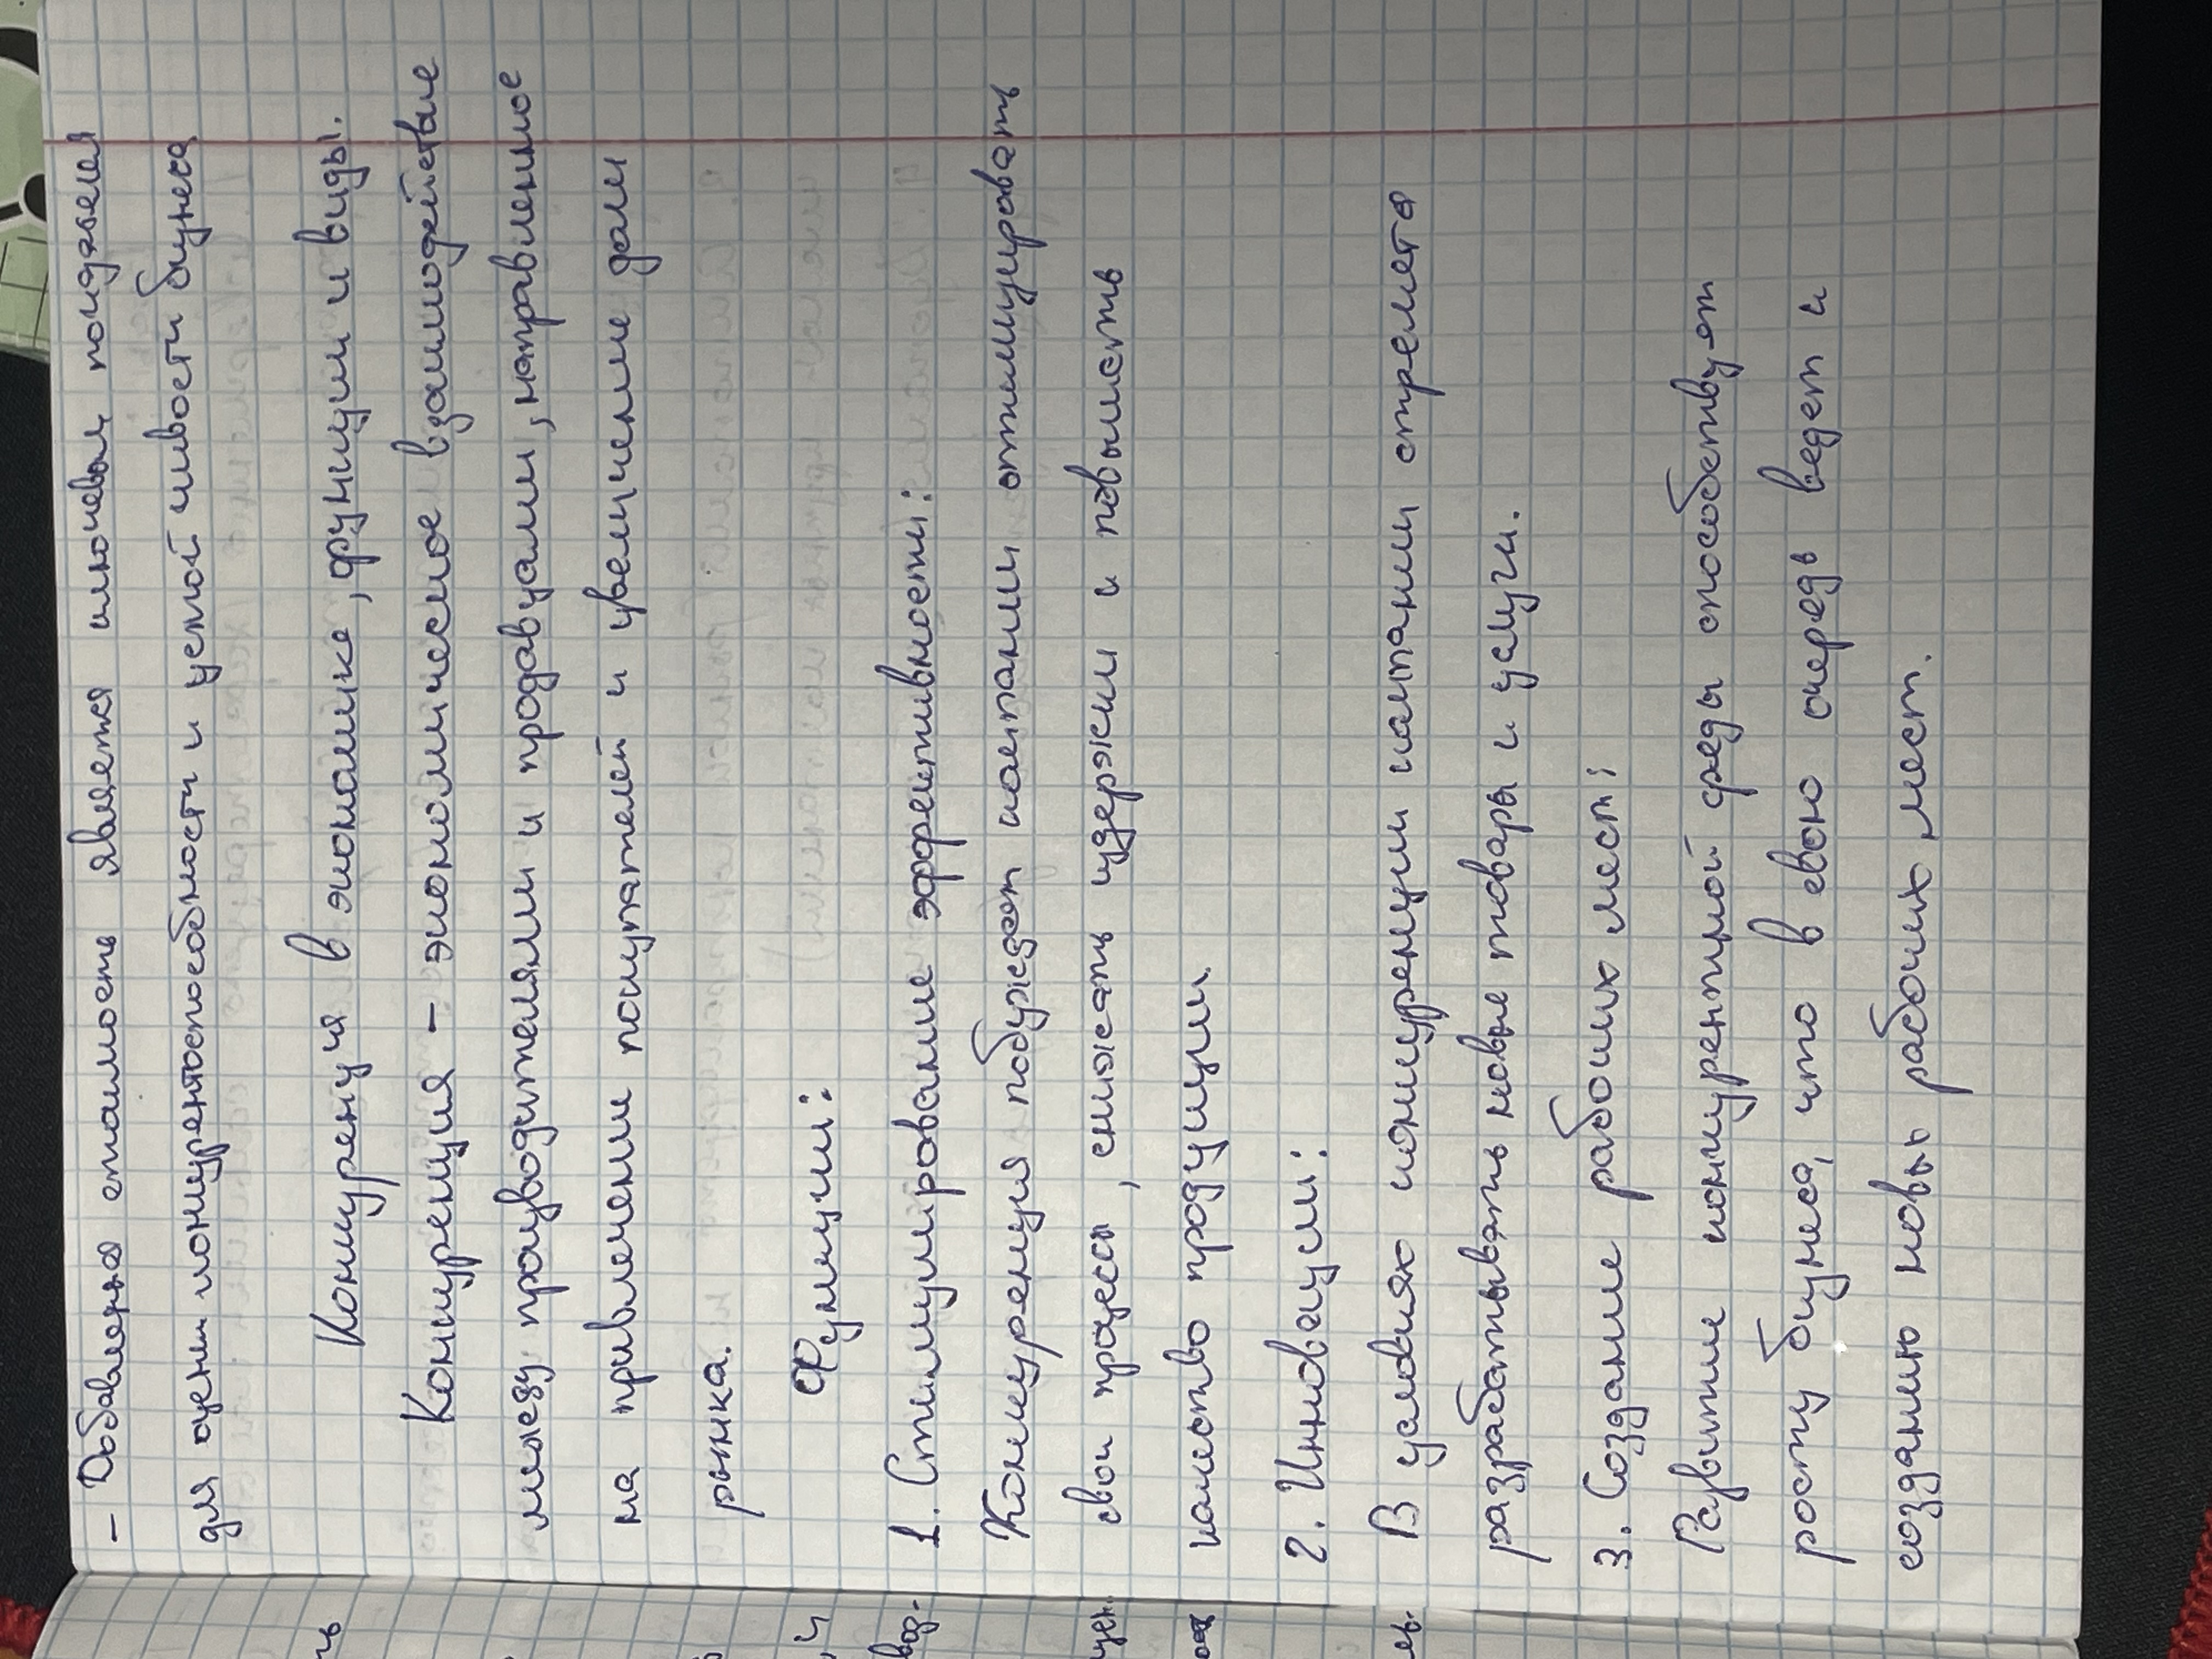 - Добавленна стоимость является ключевым показателем
для оценки конкурентоспособности и устойчивости бизнеса
Конкуренция в экономике, функции и виды.
Конкуренция – экономическое взаимодействие
между производителями и продавцами, направленное
на привлечение покупателей и увеличение доли
рынка.
Функции:
1. Стимулирование эффективности:
Конкуренция побуждает компании оптимизировать
свои процессы, снижать издержки и повышать
качество продукции.
2. Инновации:
В условиях конкуренции компании стремятся
разрабатывать новые товары и услуги.
3. Создание рабочих мест:
Развитие конкурентной среды способствует
росту бизнеса, что в свою очередь ведет к
созданию новых рабочих мест.